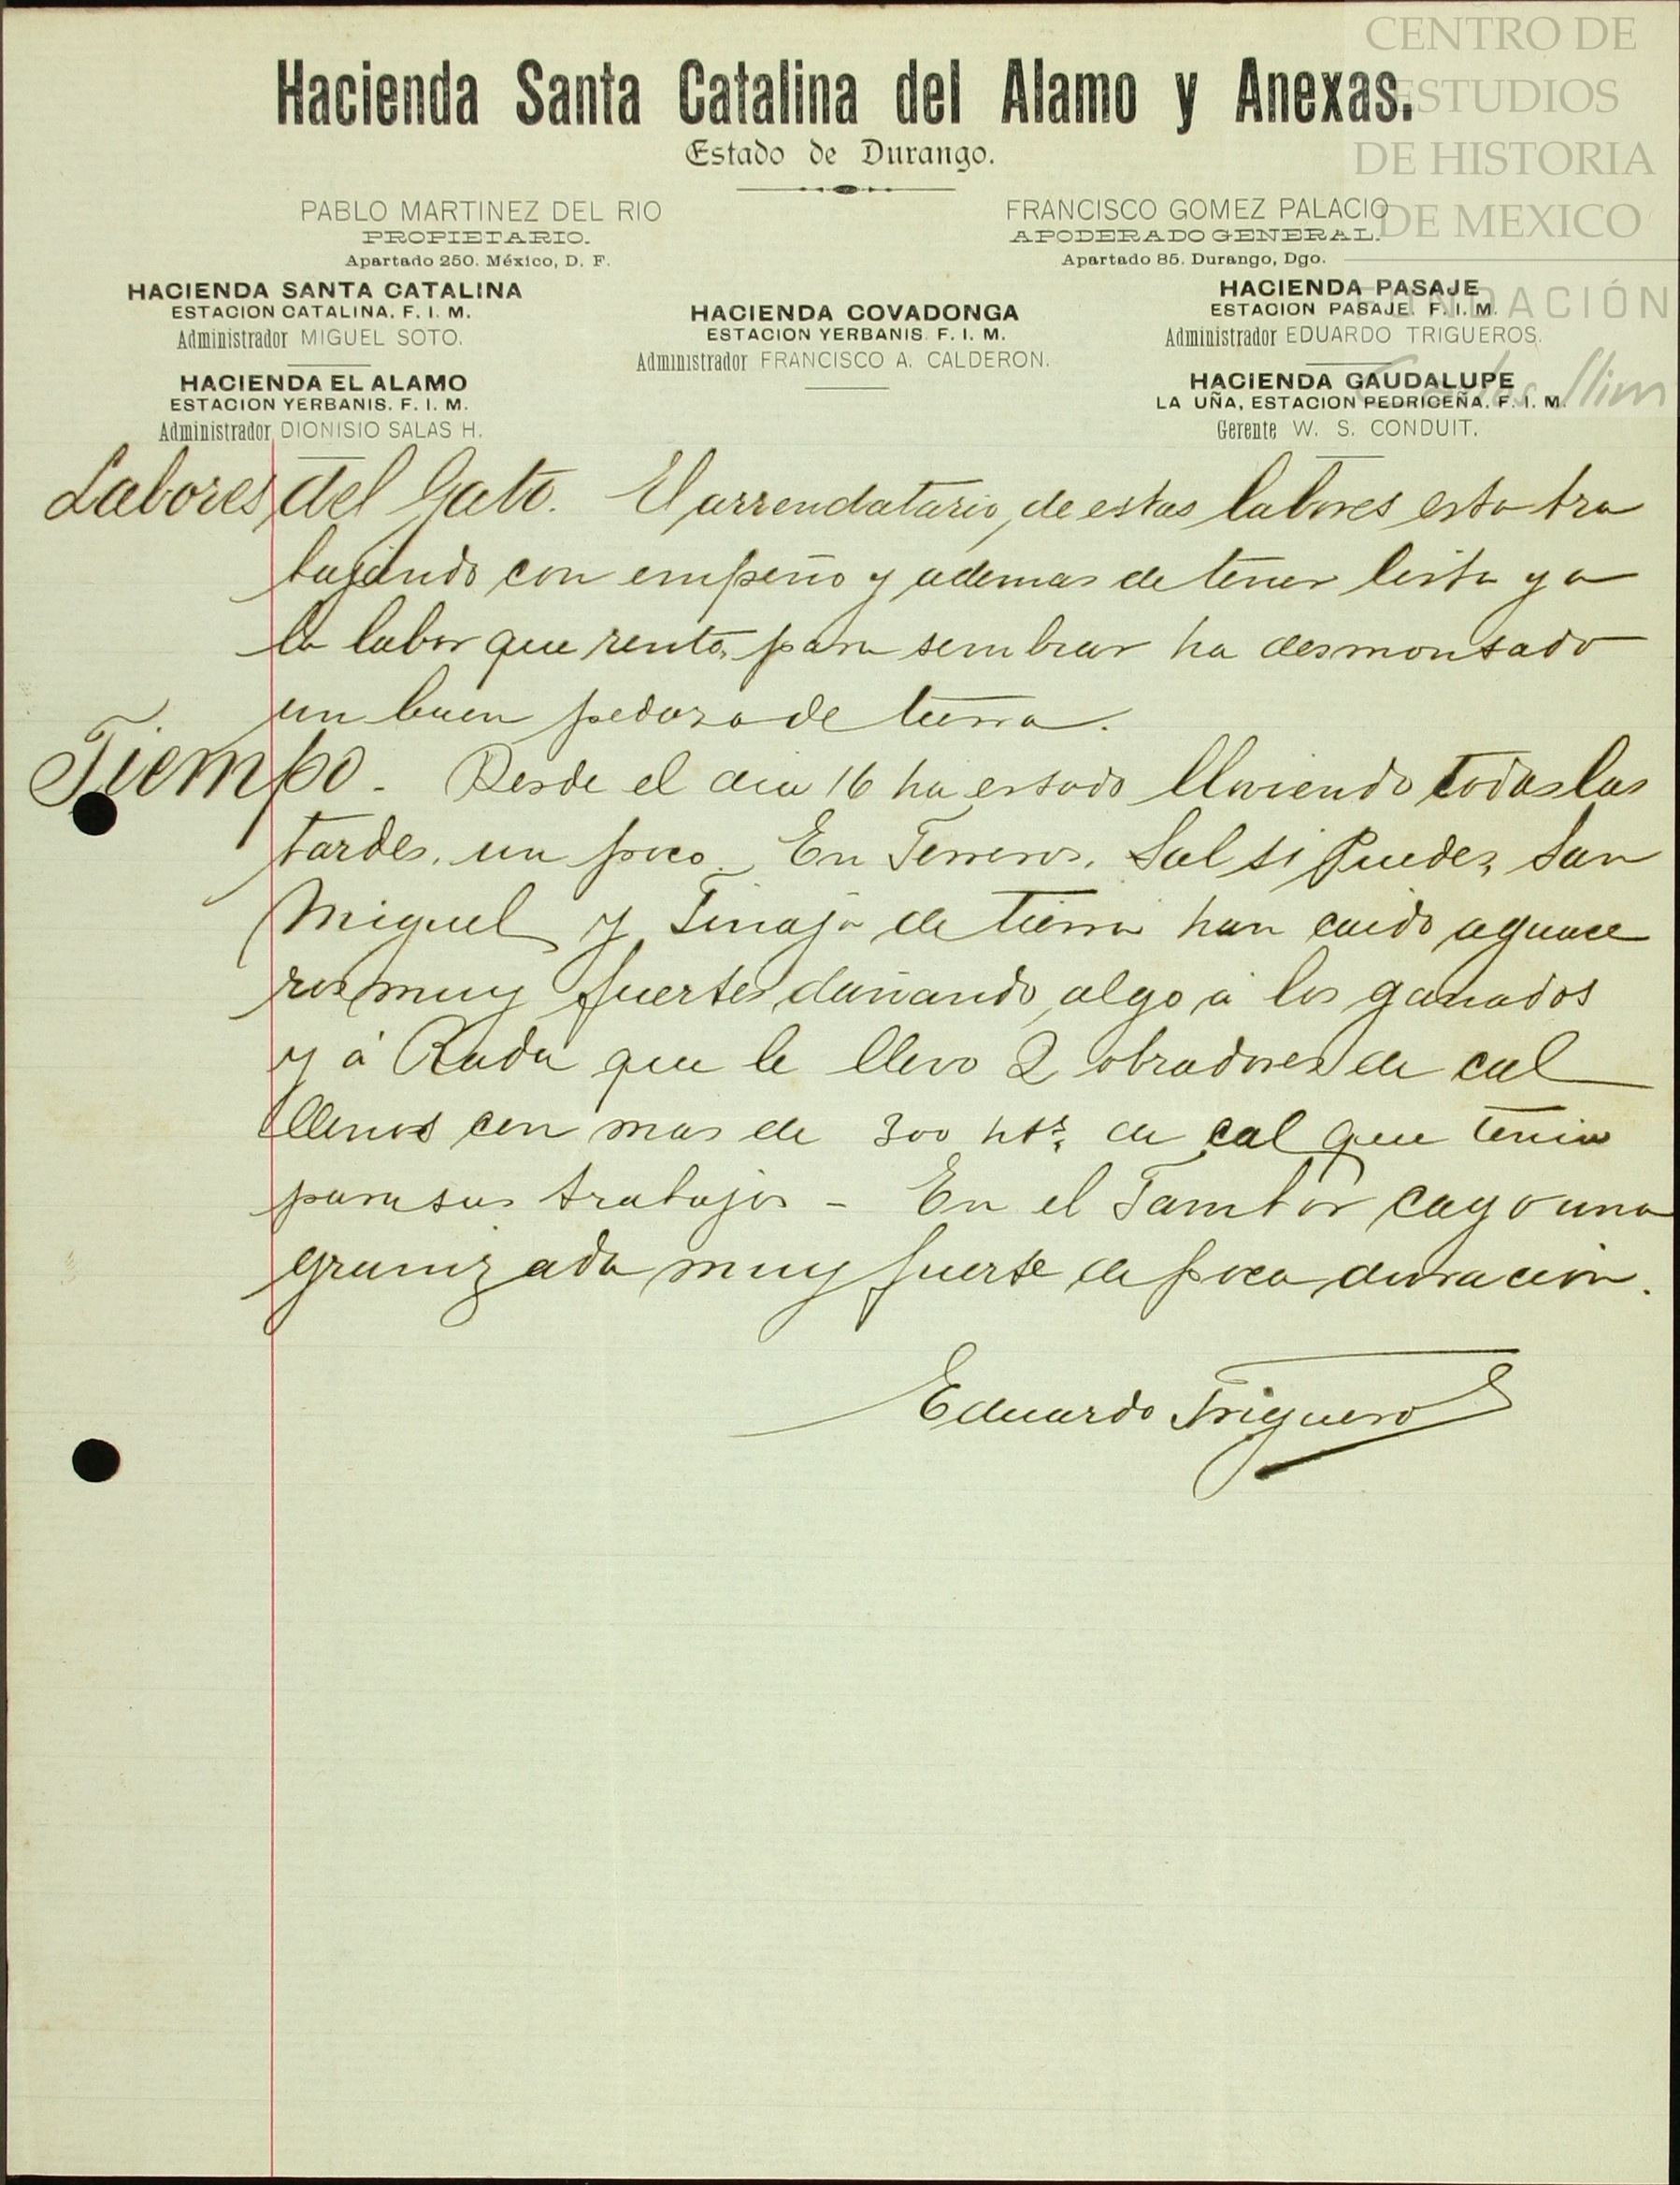 CENTRO DE
ESTUDIOS
DE HISTORIA
DE MEXICO
FUNDACIÓN
Carlos Slim
Hacienda Santa Catalina del Alamo y Anexas.
Estado de Durango.
PABLO MARTINEZ DEL RIO
PROPIETARIO.
Apartado 250. México, D. F.
FRANCISCO GOMEZ PALACIO
APODERADO GENERAL.
Apartado 85. Durango, Dgo.
HACIENDA SANTA CATALINA
ESTACION CATALINA. F. I. M.
Administrador MIGUEL SOTO.
HACIENDA EL ALAMO
ESTACION YERBANIS. F. I. M.
Administrador DIONISIO SALAS H.
HACIENDA COVADONGA
ESTACION YERBANIS. F. I. M.
Administrador FRANCISCO A. CALDERON.
HACIENDA PASAJE
ESTACION PASAJE. F. I. M.
Administrador EDUARDO TRIGUEROS.
HACIENDA GAUDALUPE
LA UÑA, ESTACION PEDRICEÑA. F. I. M.
Gerente W. S. CONDUIT.
Labores del Gato. El arrendatario, de estas labores esta tra
bajando con empeño y ademas de tener lista ya
la labor que rento, para sembrar ha desmontado
un buen pedazo de tierra.
Tiempo. Desde el dia 16 ha estado lloviendo todas las
tardes, un poco. En Terreros, Salsipuedes, San
Miguel y Tinaja de tierra han caido aguace
ros muy fuertes dañando, algo á los ganados
y á Rada que le llevo 2 obradores de cal
llenos con mas de 300 hts. de cal que tenia
para sus trabajos - En el Tambor cayo una
granizada muy fuerte de poca duracion.
Eduardo Trigueros